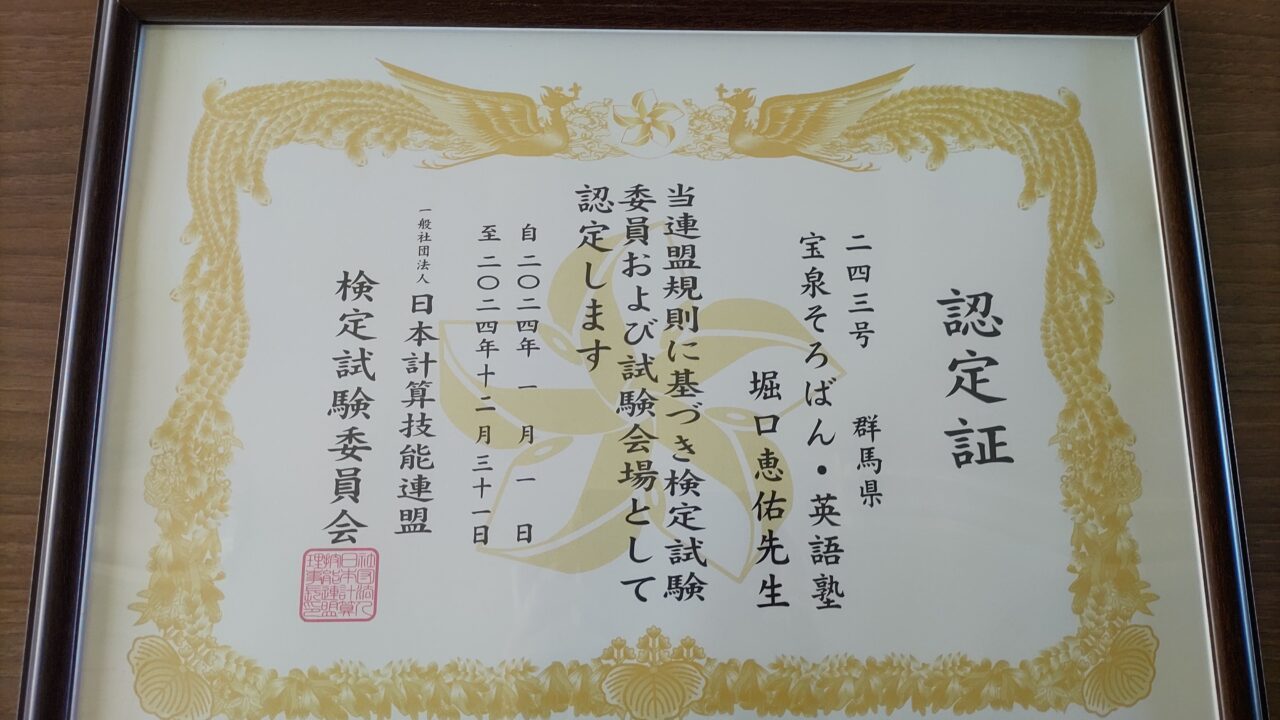 認定証
二四三号 群馬県
宝泉そろばん・英語塾
堀口恵佑先生
当連盟規則に基づき検定試験
委員および試験会場として
認定します
自 二〇二四年 一 月 一 日
至 二〇二四年十二月三十一日
一般社団法人 日本計算技能連盟
検定試験委員会